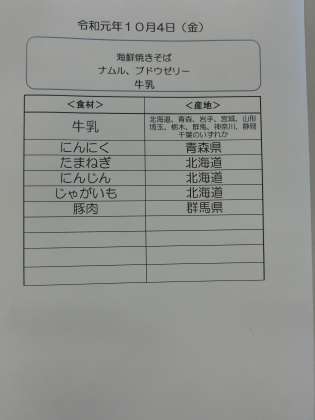 令和元年10月4日(金)
海鮮焼きそば
ナムル、ブドウゼリー
牛乳
<食材> <産地>
牛乳 北海道、青森、岩手、宮城、山形
埼玉、栃木、群馬、神奈川、静岡
千葉のいずれか
にんにく 青森県
たまねぎ 北海道
にんじん 北海道
じゃがいも 北海道
豚肉 群馬県